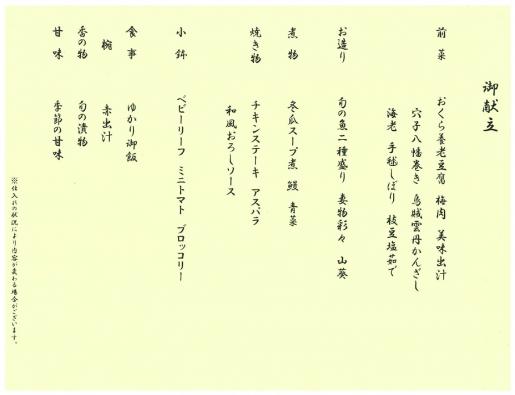 御献立
前菜 おくら養老豆腐 梅肉 美味出汁
穴子八幡巻き 烏賊雲丹かんざし
海老 手毬しぼり 枝豆塩茹で
お造り 旬の魚二種盛り 妻物彩々 山葵
煮物 冬瓜スープ煮 鰻 青菜
焼き物 チキンステーキ アスパラ
和風おろしソース
小鉢 ベビーリーフ ミニトマト ブロッコリー
食事 ゆかり御飯
椀 赤出汁
香の物 旬の漬物
甘味 季節の甘味
※仕入れの状況により内容が変わる場合がございます。